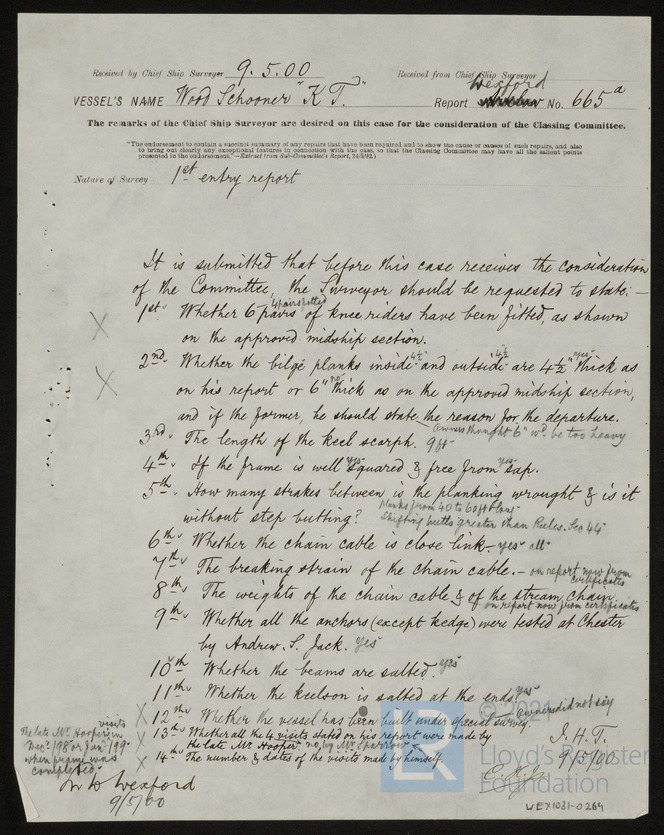 Received by Chief Ship Surveyor 9.5.00 Received from Chief Ship Surveyor
Wexford
VESSEL'S NAME Wood Schooner "K T." Report No. 665a
The remarks of the Chief Ship Surveyor are desired on this case for the consideration of the Classing Committee.
"The endorsement to contain a succinct summary of any repairs that have been required and to show the cause or causes of such repairs, and also
to bring out clearly any exceptional features in connection with the case, so that the Classing Committee may have all the salient points
presented in the endorsement."—Extract from Sub-Committee's Report, 24/3/92.)
Nature of Survey 1st entry report
It is submitted that before this case receives the consideration
of the Committee, the Surveyor should be requested to state:—
4 pairs fitted
1st Whether 6 pairs of knee riders have been fitted, as shown
on the approved midship section.
2nd Whether the bilge planks inside 4½" and outside 4½ are 4½" yes thick as
on his report or 6" no thick as on the approved midship section,
and if the former, he should state the reason for the departure.
Owners thought 6" wd be too heavy
3rd The length of the keel scarph. 9 ft
4th If the frame is well yes squared & free from yes sap.
5th How many strakes between is the planking wrought & is it
without step butting? Planks from 40 to 60 ft long
Shifting butts greater than Rules. Sec 44
6th Whether the chain cable is close link. yes all
7th The breaking strain of the chain cable. — on report now from
certificates
8th The weights of the chain cable & of the stream chain
on report now from certificates
9th Whether all the anchors (except kedge) were tested at Chester
by Andrew. S. Jack. Yes
10th Whether the beams are salted. yes
11th Whether the keelson is salted at the ends. yes
owner did not say
12th Whether the vessel has been built under special survey.
13th Whether all the 4 visits stated on his report were made by
the late Mr Hooper no, by Mr Sparrow
14th The number & dates of the visits made by himself.
The late Mr Hooper's visits in
Decr '98 or Jany '99
when frame was
completed.
J. H. T.
9/5/00
Wexford
9/5/00
© 202
LR
Lloyd's Register
Foundation
WEX1031-0264